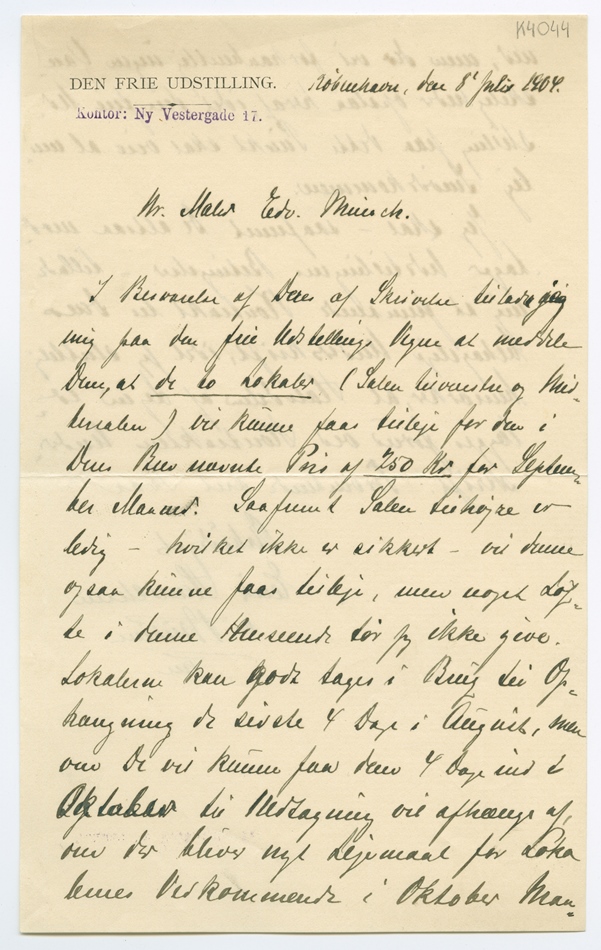 K4044
DEN FRIE UDSTILLING.
Kontor: Ny Vestergade 17.
København, den 8' Juli 1904.
Hr. Maler Edv. Münch.
I Besvarelse af Deres af Skrivelse tillader jeg
mig paa den frie Udstillings Vegne at meddele
Dem, at de to Lokaler (Salen tilvenstre og Mid-
tersalen) vil kunne faas tilleje for den i
Deres Brev nævnte Pris af 750 Kr. for Septem-
ber Maaned. Saafremt Salen tilhøjre er
ledig – hvilket ikke er sikkert – vil denne
ogsaa kunne faas tilleje, men noget Løf-
te i denne Henseende tør jeg ikke give.
Lokalerne kan godt tages i Brug til Op-
hængning de sidste 4 Dage i August, men
om De vil kunne faa dem 4 Dage ind i
Oktober til Nedtagning vil afhænge af,
om der bliver nyt Lejemaal for Loka
lernes Vedkommende i Oktober Maa-